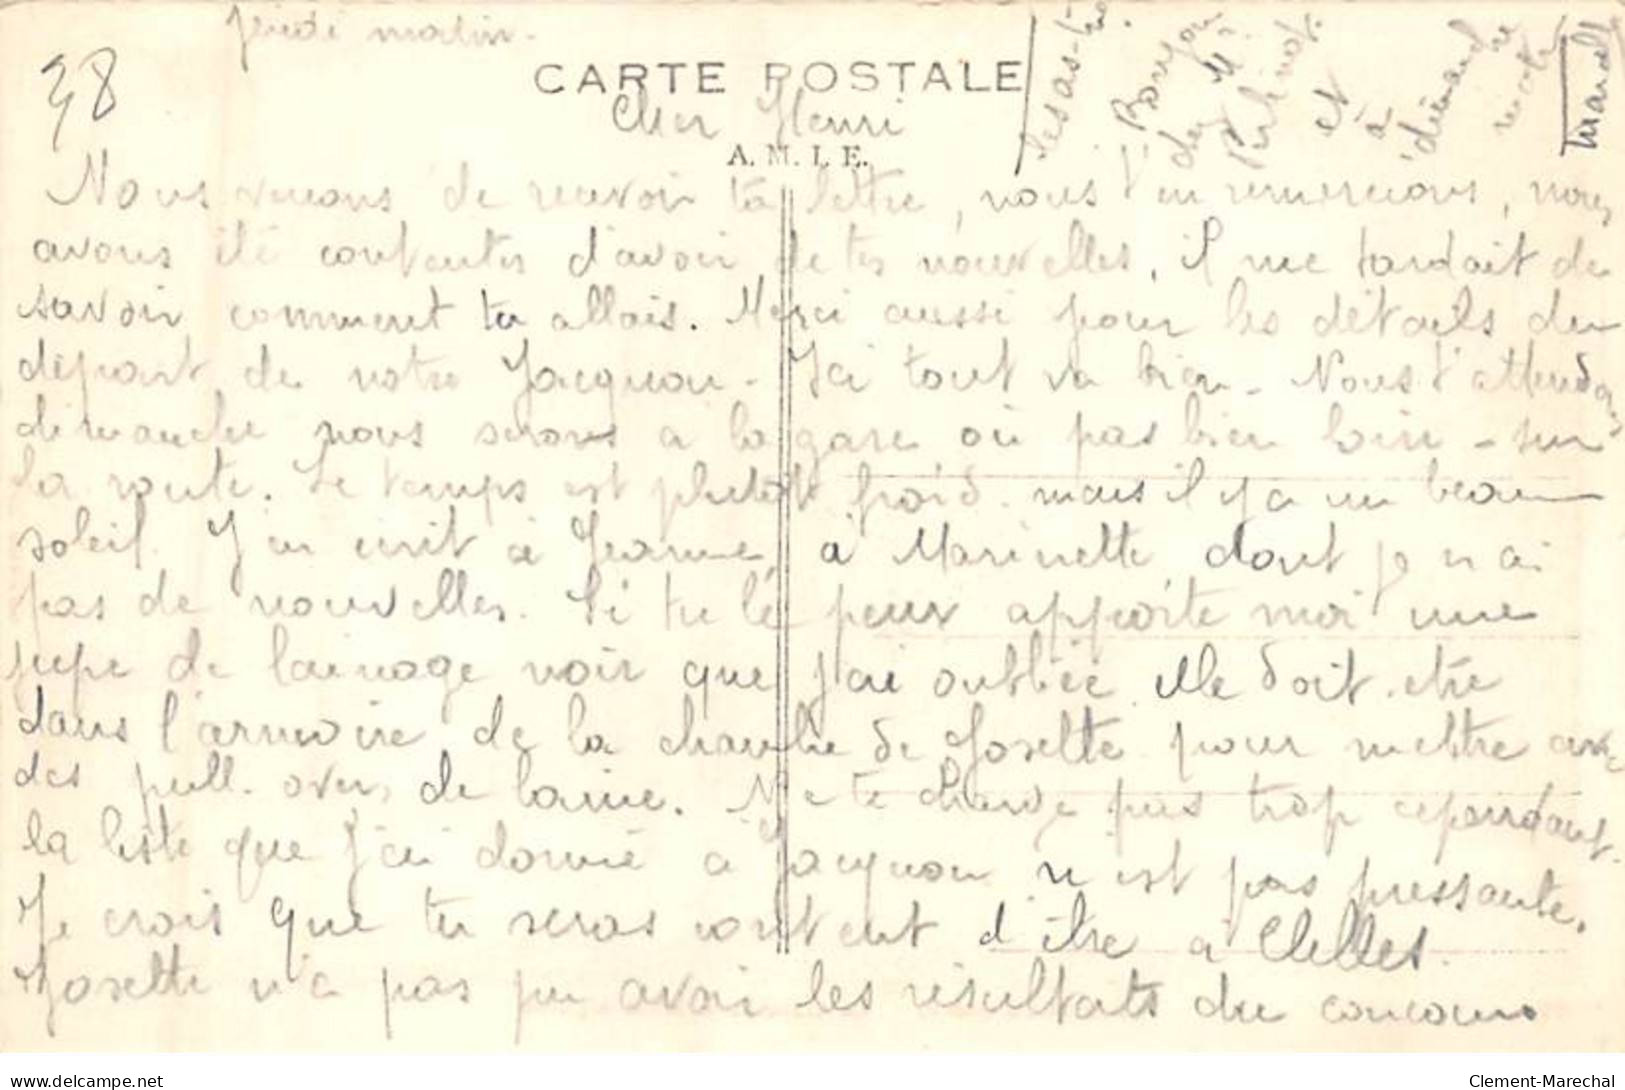 Jeudi matin.
38
CARTE POSTALE
Cher Henri
A. M. I. E.
Nous venons de recevoir ta lettre, nous t'en remercions, nous
avons été contentes d'avoir de tes nouvelles, il me tardait de
savoir comment tu allais. Merci aussi pour les détails du
départ de notre Jacquou. Ici tout va bien. Nous t'attendons
dimanche nous serons à la gare ou pas bien loin - sur
la route. Le temps est plutôt froid mais il y a un beau
soleil. J'ai écrit à Jeanne, à Marinette dont je n'ai
pas de nouvelles. Si tu le peux apporte moi une
jupe de lainage noir que j'ai oubliée elle doit être
dans l'armoire de la chambre de Josette pour mettre avec
des pull-overs de laine. Ne te charge pas trop cependant.
la liste que j'ai donné à Jacquou n'est pas pressante.
Je crois que tu seras content d'être à Clelles.
Josette n'a pas pu avoir les résultats du concours
Bonjour
de Mr
et
à
dimanche
Marcelle
delcampe.net
Clement-Marechal